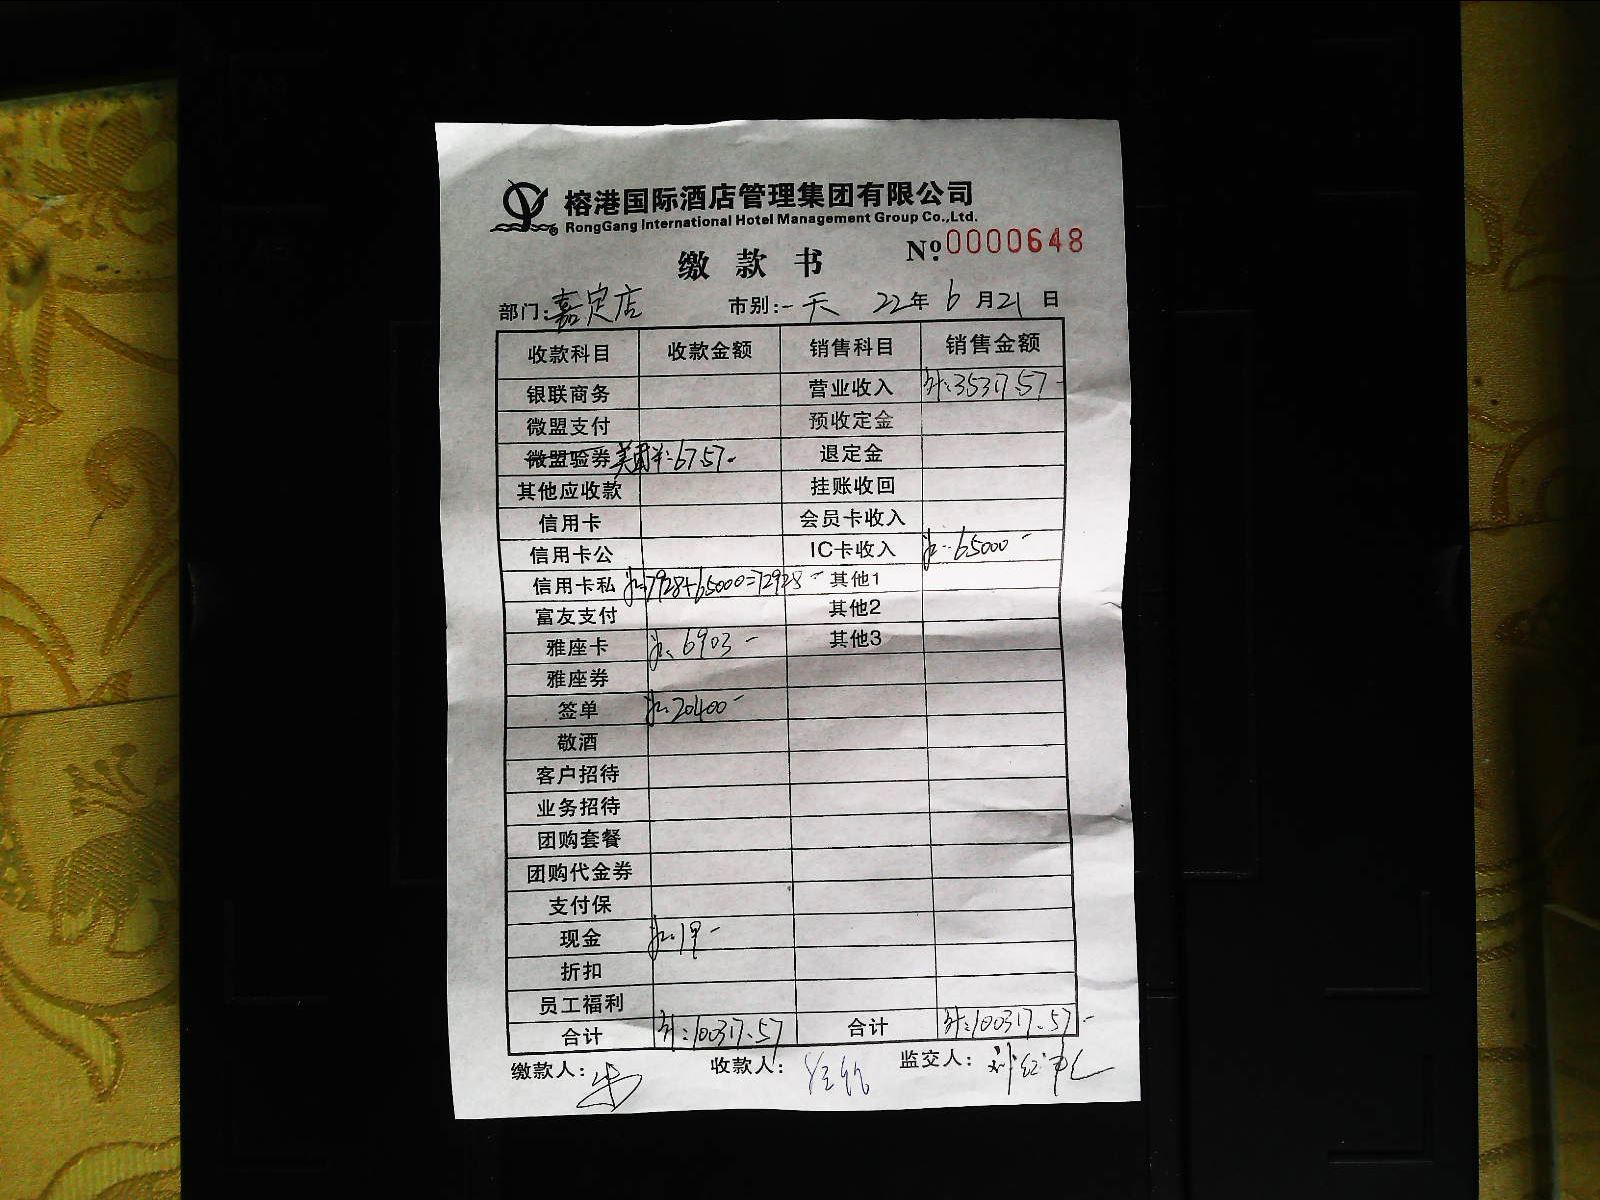 榕港国际酒店管理集团有限公司
RongGang International Hotel Management Group Co.,Ltd.
缴款书 Nº:0000648
部门:嘉定店 市别:一天 22年6月21日
收款科目 收款金额 销售科目 销售金额
银联商务 营业收入 计:35317.57-
微盟支付 预收定金
微盟验券 美团:67.57- 退定金
其他应收款 挂账收回
信用卡 会员卡收入
信用卡公 IC卡收入 65000-
信用卡私 7928+65000=72928- 其他1
富友支付 其他2
雅座卡 6903- 其他3
雅座券
签单 20400-
敬酒
客户招待
业务招待
团购套餐
团购代金券
支付保
现金 19-
折扣
员工福利
合计 计:100317.57 合计 计:100317.57-
缴款人: 收款人: 监交人: